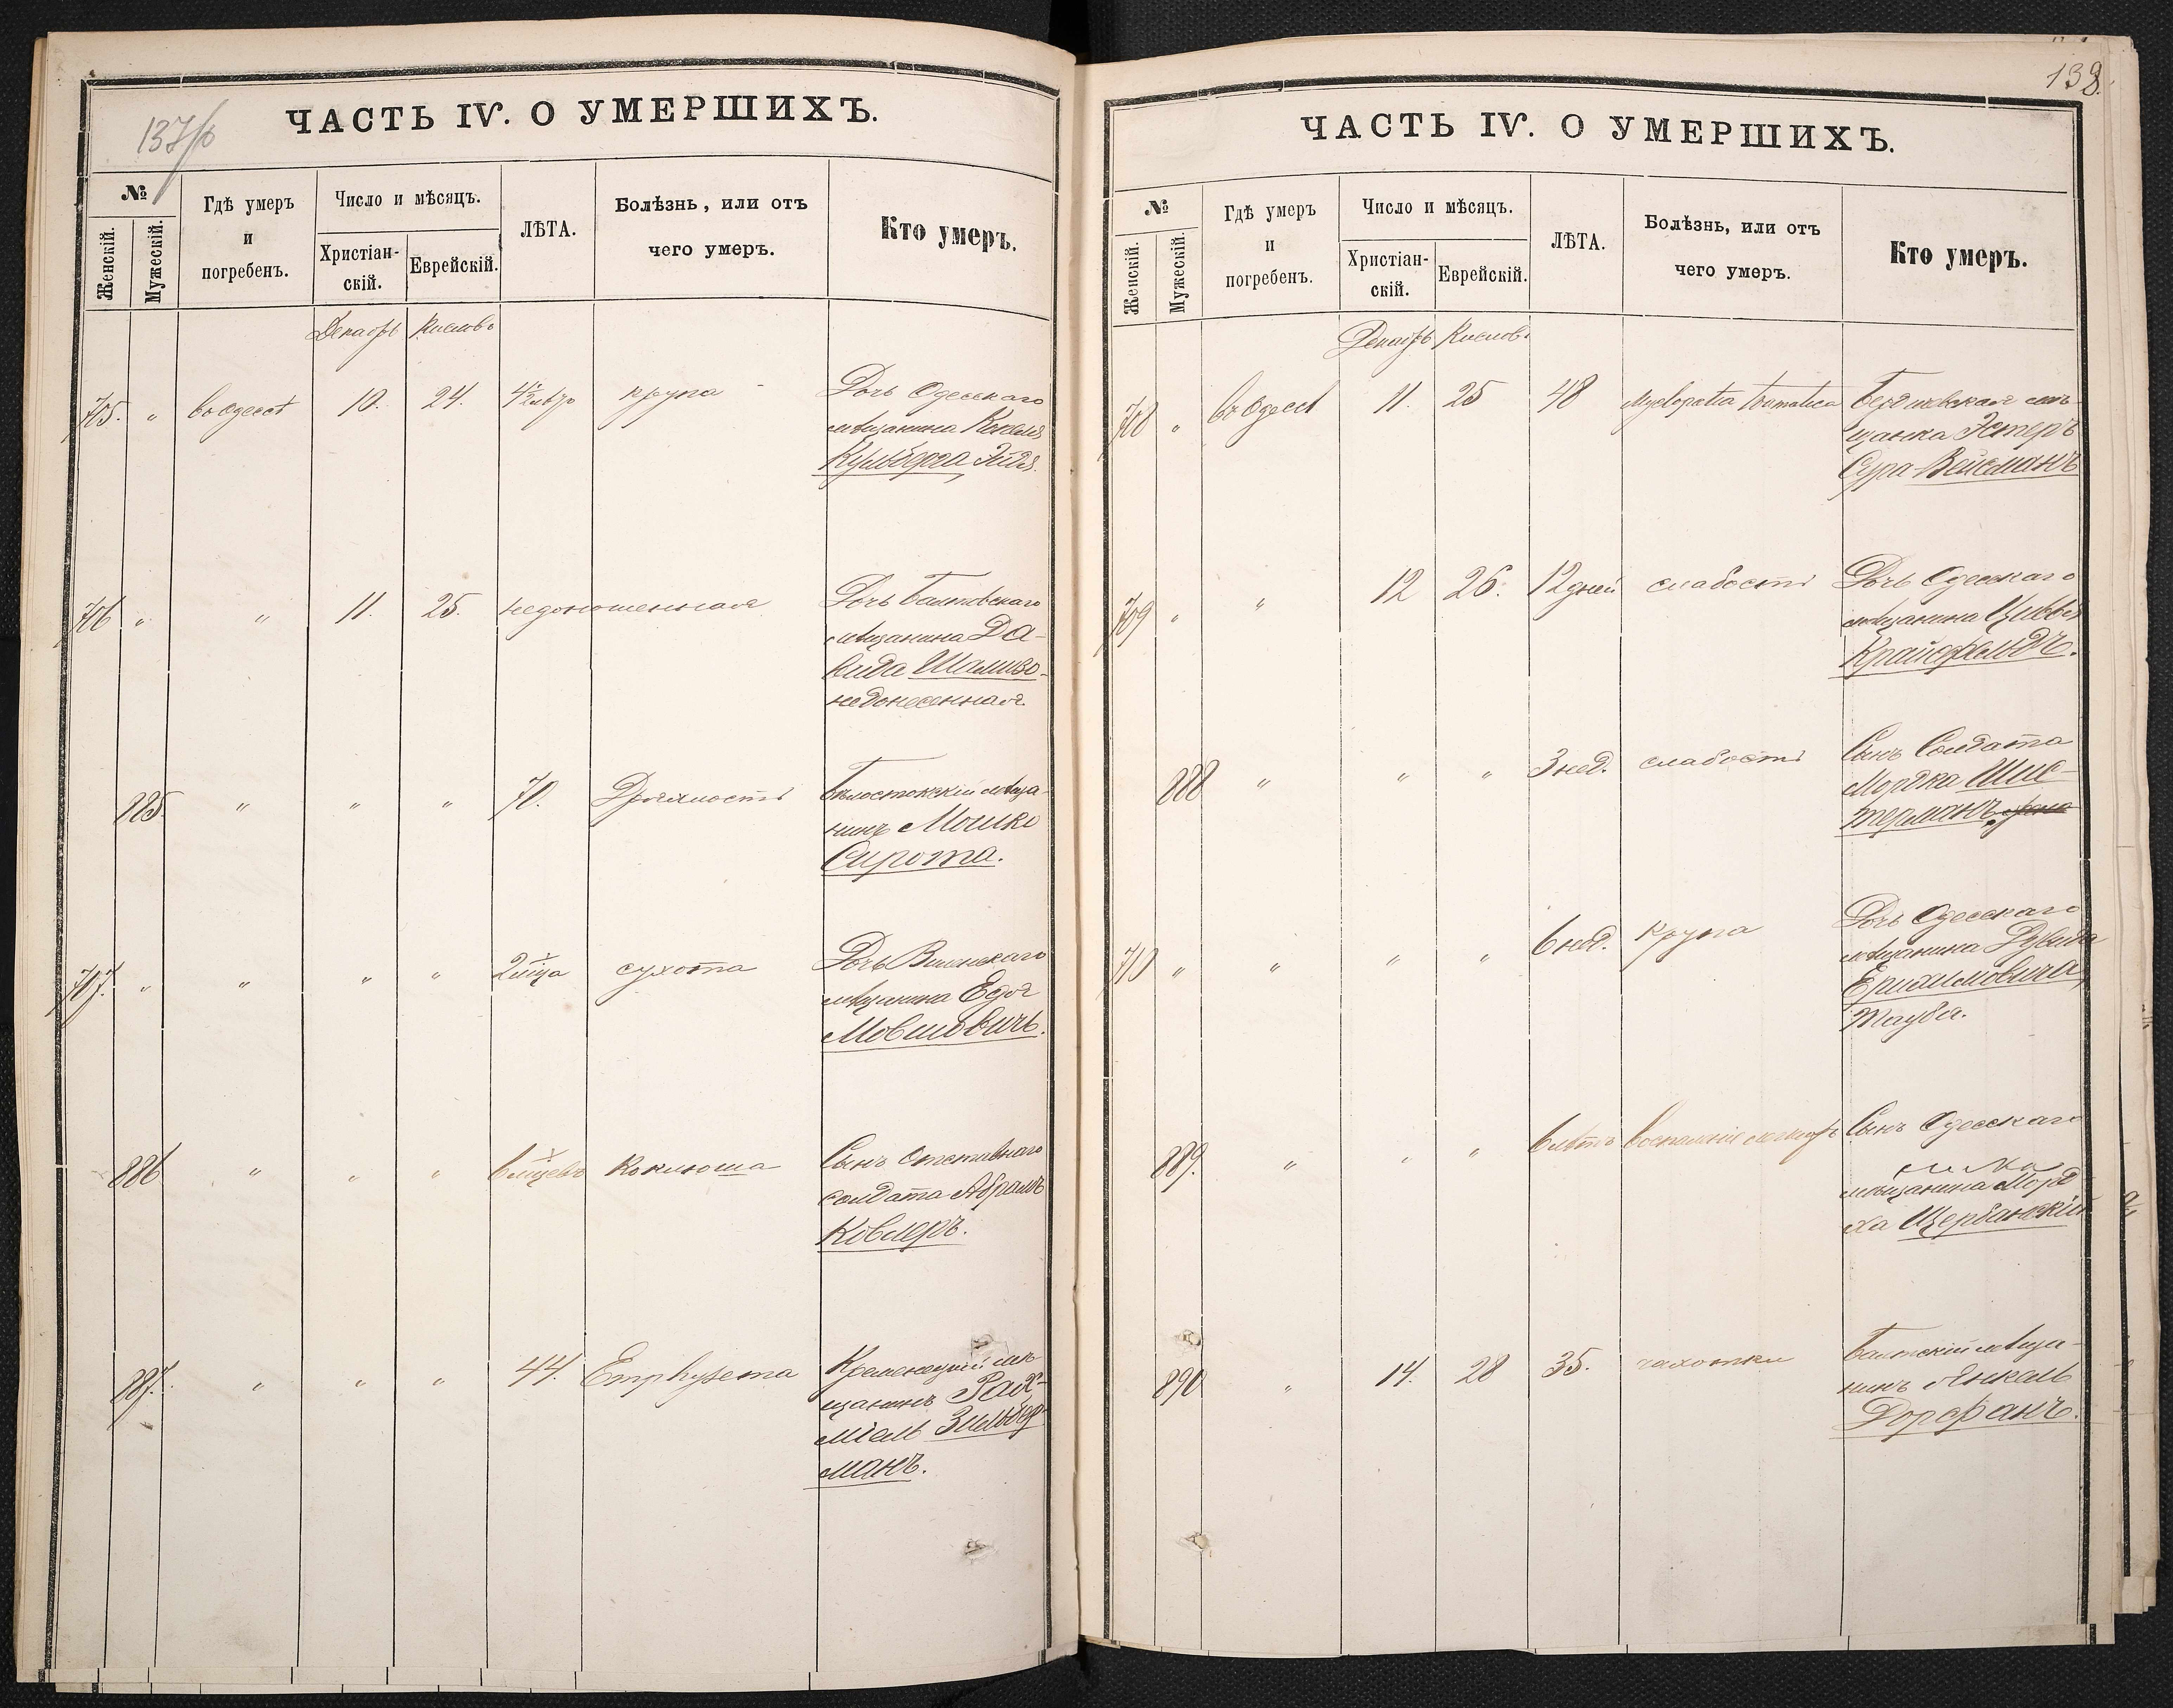 137/б
ЧАСТЬ IV. О УМЕРШИХЪ.
№
Женскій.
Мужескій.
Гдѣ умеръ
и
погребенъ.
Число и мѣсяцъ.
Христіан-
скій.
Еврейскій.
ЛѢТА.
Болѣзнь, или отъ
чего умеръ.
Кто умеръ.
Декабрь Кислевъ
705. " въ Одессѣ 10. 24. крупа Дочь Одесскаго
мѣщанина
706 " " 11. 25. недоношенная Дочь
мѣщанина Да-
вида
недонесенная.
885. " " " 70. Дряхлости Бѣлостокскій мѣща-
нинъ Мошко
Сирота.
707. " " " " 2 мца сухота Дочь Виленскаго
мѣщанина
Мовшовичъ.
886 " " " 6 мцевъ Коклюша Сынъ Отставнаго
солдата Абрамъ
Ковлеръ.
887. " " " 44. Emphysema Кременецкій мѣ-
щанинъ Рах-
міель Зильбер-
манъ.
138.
ЧАСТЬ IV. О УМЕРШИХЪ.
№
Женскій.
Мужескій.
Гдѣ умеръ
и
погребенъ.
Число и мѣсяцъ.
Христіан-
скій.
Еврейскій.
ЛѢТА.
Болѣзнь, или отъ
чего умеръ.
Кто умеръ.
Декабрь Кислевъ
708 " въ Одессѣ 11. 25 48 мѣ-
щанка Эстеръ
Сура Вейсманъ
709 " " 12 26. 12 дней слабости Дочь Одесскаго
мѣщанина Цивья
Крайсфельдъ.
888 " " " 3 нед. слабости Сынъ Солдата
Мордка Шис-
терманъ
710 " " " " 6 нед. крупа Дочь Одесскаго
мѣщанина Давида
Ерихимовича,
Тауба.
889. " " " 6 лѣтъ воспаленія Сынъ Одесскаго
мѣщанина Морд
ха Щербанскій
890 " 14. 28 35. чахотки Балтскій мѣща-
нинъ Янкель
Дорфанъ.